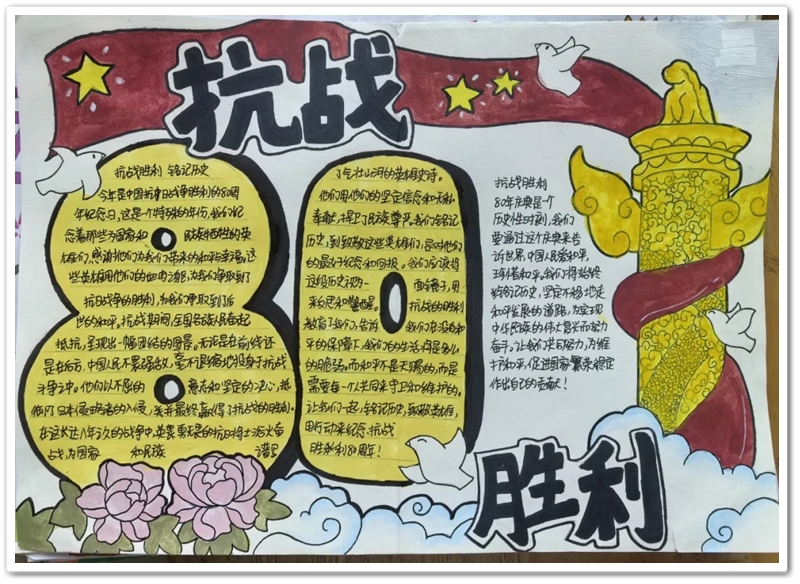 抗战
抗战胜利 铭记历史
今年是中国抗日战争胜利的80周
年纪念日,这是一个特殊的年份,我们纪
念着那些为国家和 民族牺牲的英
雄们,感谢他们为我们带来的和平与幸福。这
些英雄用他们的血肉之躯,为我们争取到了
抗日战争的胜利,为我们争取到了后
世的和平。抗战期间,全国各族人民奋起
抵抗,呈现出一幅团结的图景。无论是在前线还
是在后方,中国人民不畏强敌,毫不退缩地投身于抗战
斗争之中。他们以不屈的 意志和坚定的决心,抵
御了日本侵略者的入侵,并最终赢得了抗战的胜利。
在这长达八年之久的战争中,英勇无畏的抗日将士浴血奋
战,为国家 和民族 谱写
了气壮山河的英雄史诗。
他们用他们的坚定信念和无私
奉献,捍卫了民族尊严。我们铭记
历史,到致敬这些英雄们,是对他们
的最好纪念和回报。我们应该将
这段历史视为一 面镜子,用
来启思和警醒。 抗战的胜利
教育了我们,告诉 我们在没有和
平的保障下,我们的生活将是多么
的脆弱。而和平不是天赐的,而是
需要每一个人共同来守卫和维护的。
让我们一起,铭记历史,致敬英雄,
用行动来纪念抗战
胜利80周年!
抗战胜利
80年庆典是个
历史性时刻,我们
要通过这个庆典来告
诉世界,中国人民爱和平,
珍惜和平。我们将始终
铭记历史,坚定不移地走
和平发展的道路,为实现
中华民族的伟大复兴而努力
奋斗。让我们共同努力,为维
护和平,促进国家繁荣稳定
作出自己的贡献!
胜利